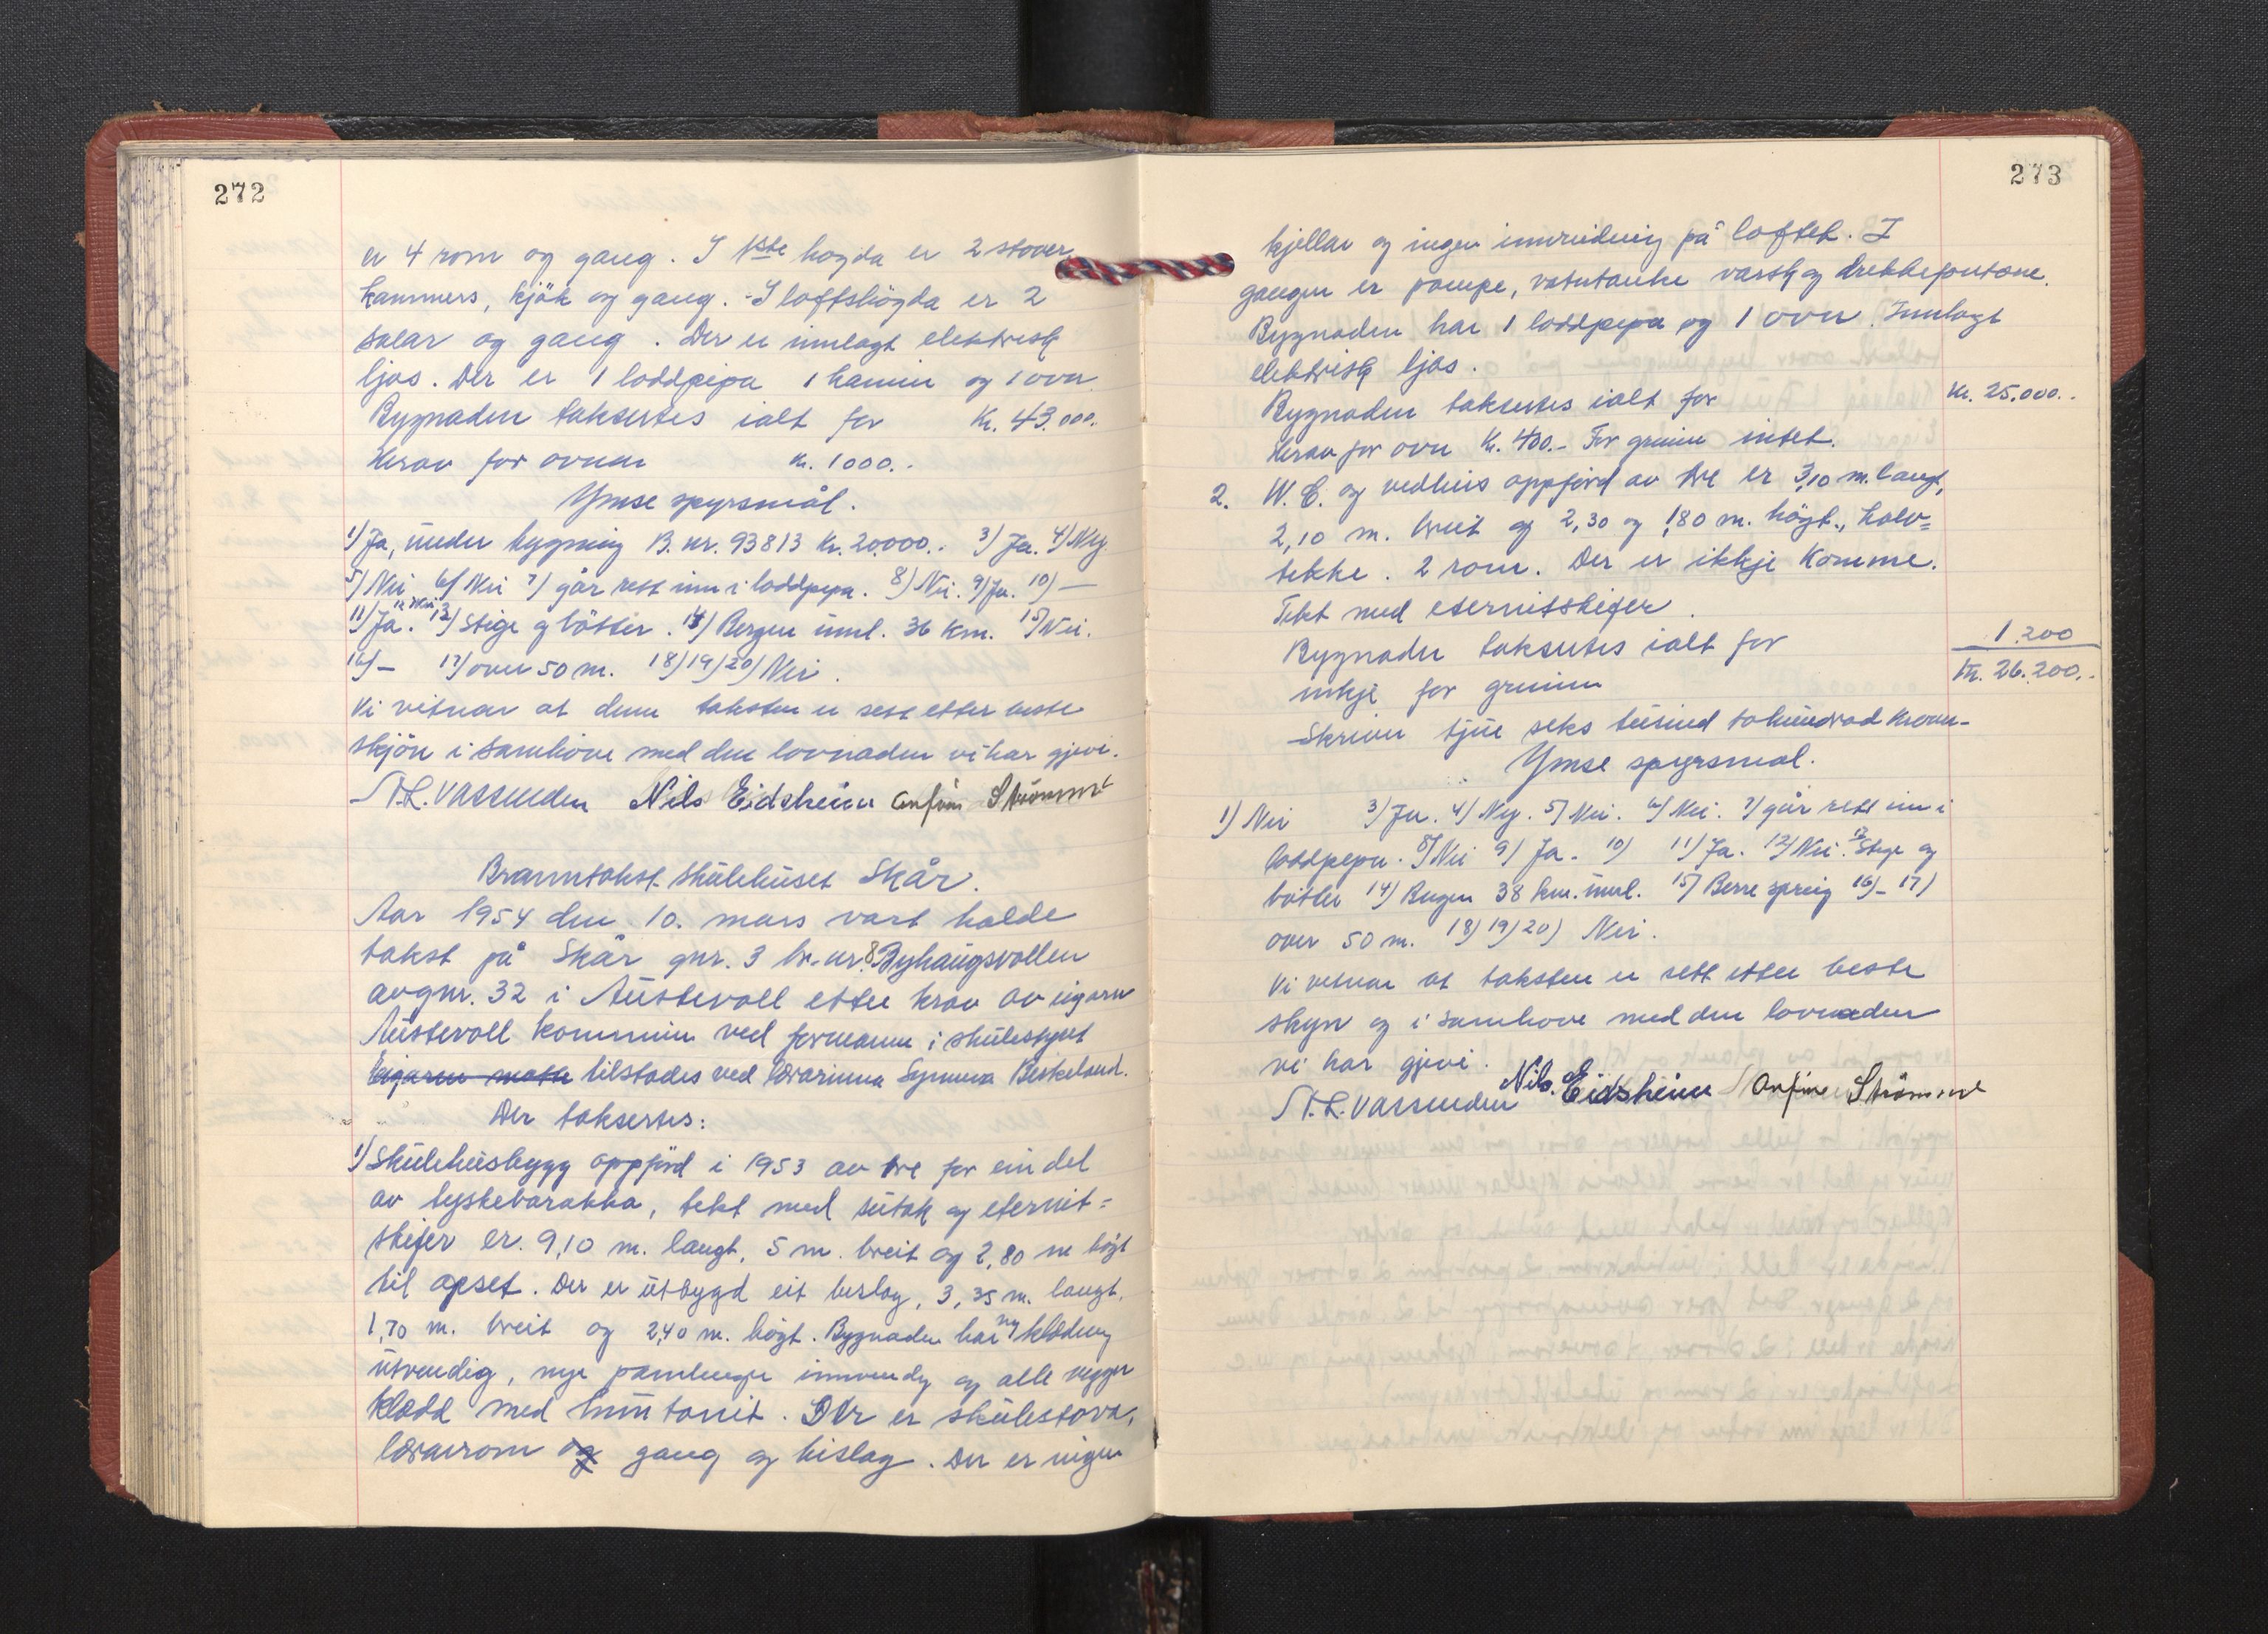 272
er 4 rom og gang. I 1ste høgda er 2 stover
kammers, kjök og gang. - I loftshögda er 2
salar og gang. Der er innlagt elektrisk
ljos. Der er 1 loddpipa 1 kamin og 1 ovn.
Bygnaden taksertes ialt for Kr. 43.000.
Herav for ovnen Kr. 1000.-
Ymse spyrsmål.
1) Ja, under bygning B. nr. 93813 Kr. 20.000.- 3) Ja. 4) Ny
5) Nei 6) Nei 7) går rett inn i loddpipa. 8) Nei. 9) Ja. 10) —
11) Ja. 12 Nei 13) Stige og bötter. 14) Bergen uml. 36 km. 15) Nei.
16) — 17) over 50 m. 18) 19) 20) Nei.
Vi vitnar at denne taksten er sett etter beste
skjön i samhöve med den lovnaden vi har gjevi.
N.L. Vassenden Nils Eidsheim Anfin Strömme
Branntakst skulehuset Skår.
Aar 1954 den 10. mars vart halde
takst på Skår gnr. 3 br. nr. 8 Byhaugsvollen
avgnr. 32 i Austevoll etter krav av eigarn
Austevoll kommune ved formann i skulestyret
Eigaren møtte tilstades ved lærarinna Synneva Birkeland.
Der taksertes:
1) Skulehusbygg oppförd i 1953 av tre for ein del
av tyskebarakka, tekt med sutak og eternit=
skifer er. 9,10 m. langt, 5 m. breit og 2,80 m högt
til opset. Der er utbygd eit bislag, 3,35 m. langt.
1,70 m. breit og 2,40 m. högt. Bygnaden har ny klædning
utvendig, nye panelinger innvendig og alle vegger
klædd med huntonit. Der er skulestova,
lærarrom og gang og bislag. Der er ingen
273
kjellar og ingen innreidning på loftet. I
gangen er pumpe, vatntanke vask og drekkefontene.
Bygnaden har 1 loddpipa og 1 ovn. Innlagt
elektrisk ljos.
Bygnaden taksertes ialt for Kr. 25.000.-
Herav for ovn Kr. 400.- For grunn intet.
2. W.C. og vedhus oppförd av tre er 3,10 m. langt,
2,10 m. breit og 2,30 og 1,80 m. högt., halv=
tekke. 2 rom. Der er ikkje komme.
Tekt med eternitskifer.
Bygnaden taksertes ialt for 1.200
inkje for grunnen Kr. 26.200.-
Skriver tjue seks tusind tohundrad kroner-
Ymse spyrsmal.
1) Nei 3) Ja. 4) Ny. 5) Nei. 6) Nei. 7) går rett inn i
loddpipa. 8) Nei 9) Ja. 10) 11) Ja. 12) Nei. 13 Stige og
bötter 14) Bergen 38 km. uml. 15) Berre spreng 16) - 17)
over 50 m. 18) 19) 20) Nei.
Vi vitnar at taksten er sett etter beste
skyn og i samhove med den lovnaden
vi har gjevi.
N.L. Vassenden Nils Eidsheim Anfin Strömme